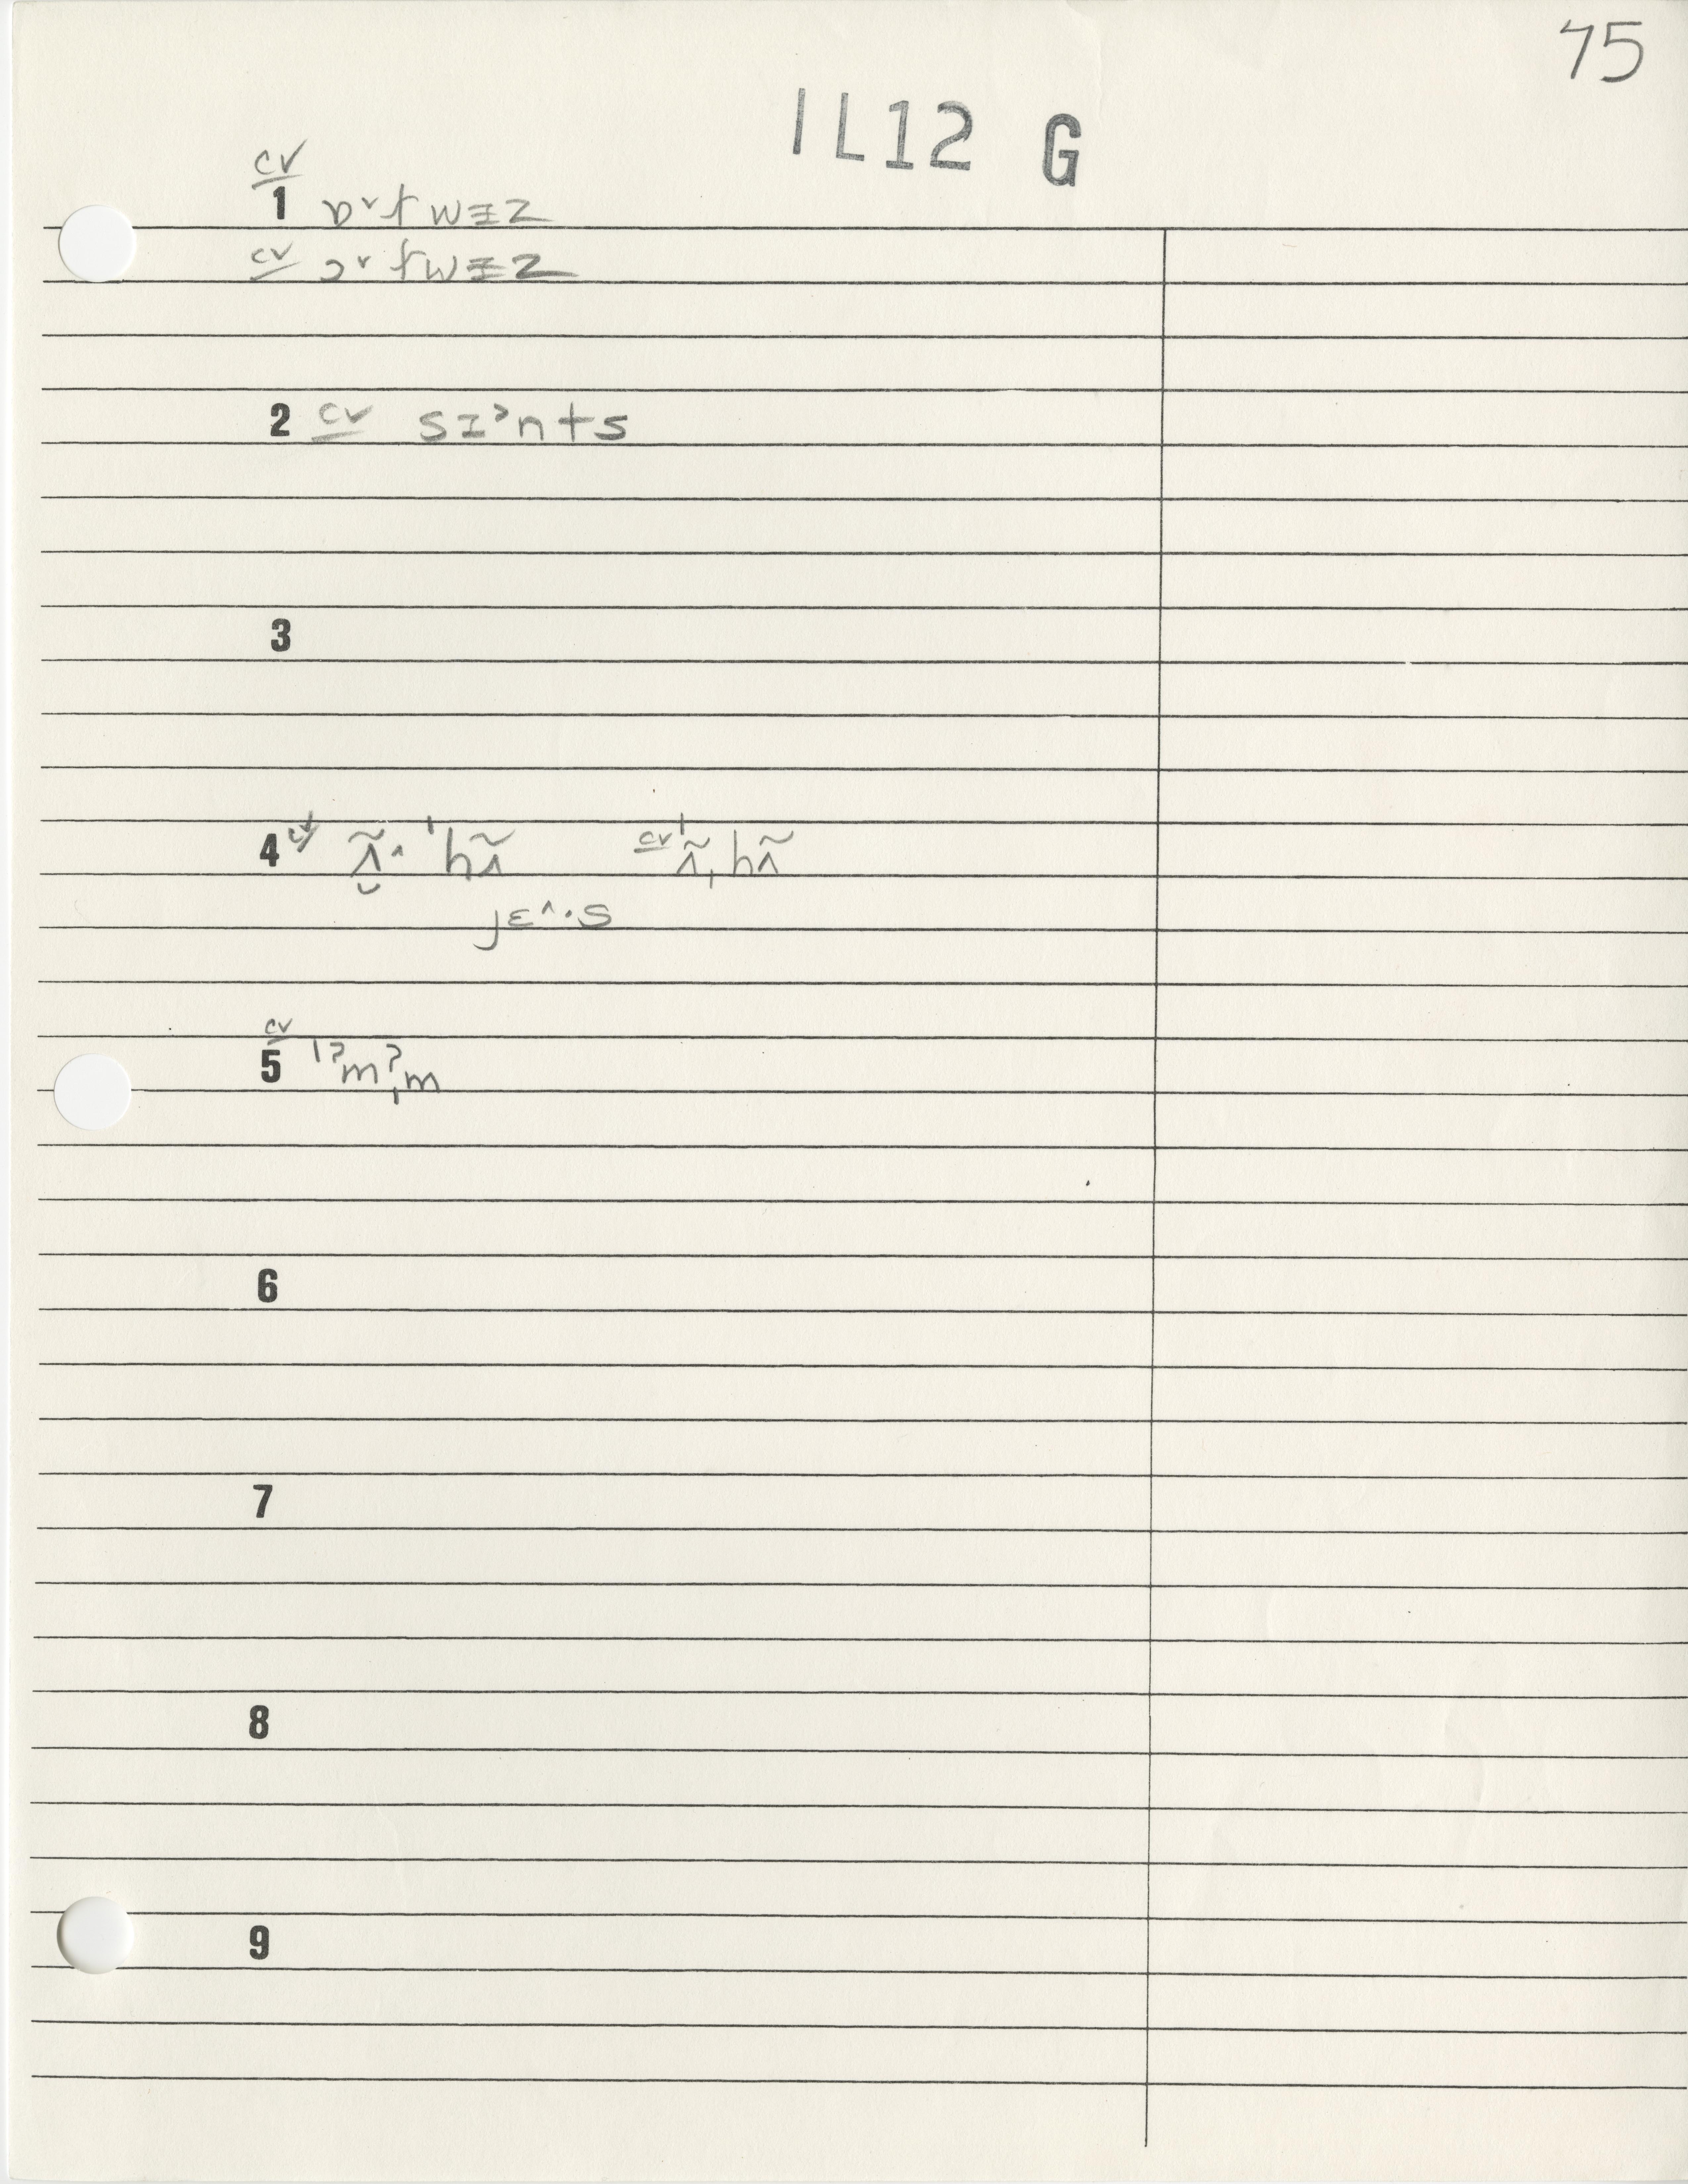 75
1L12 G
cv
1 ɒ˅ɫwɪ̵z
cv ɔ˅ɫwɪ̵z
2 cv sɪ˃nts
3
4 cv ʌ̯̃˄ˈhʌ̃ cv ˈʌ̃ˌhʌ̃
jɛ˄·s
5 cv ˈʔmʔˌm
6
7
8
9